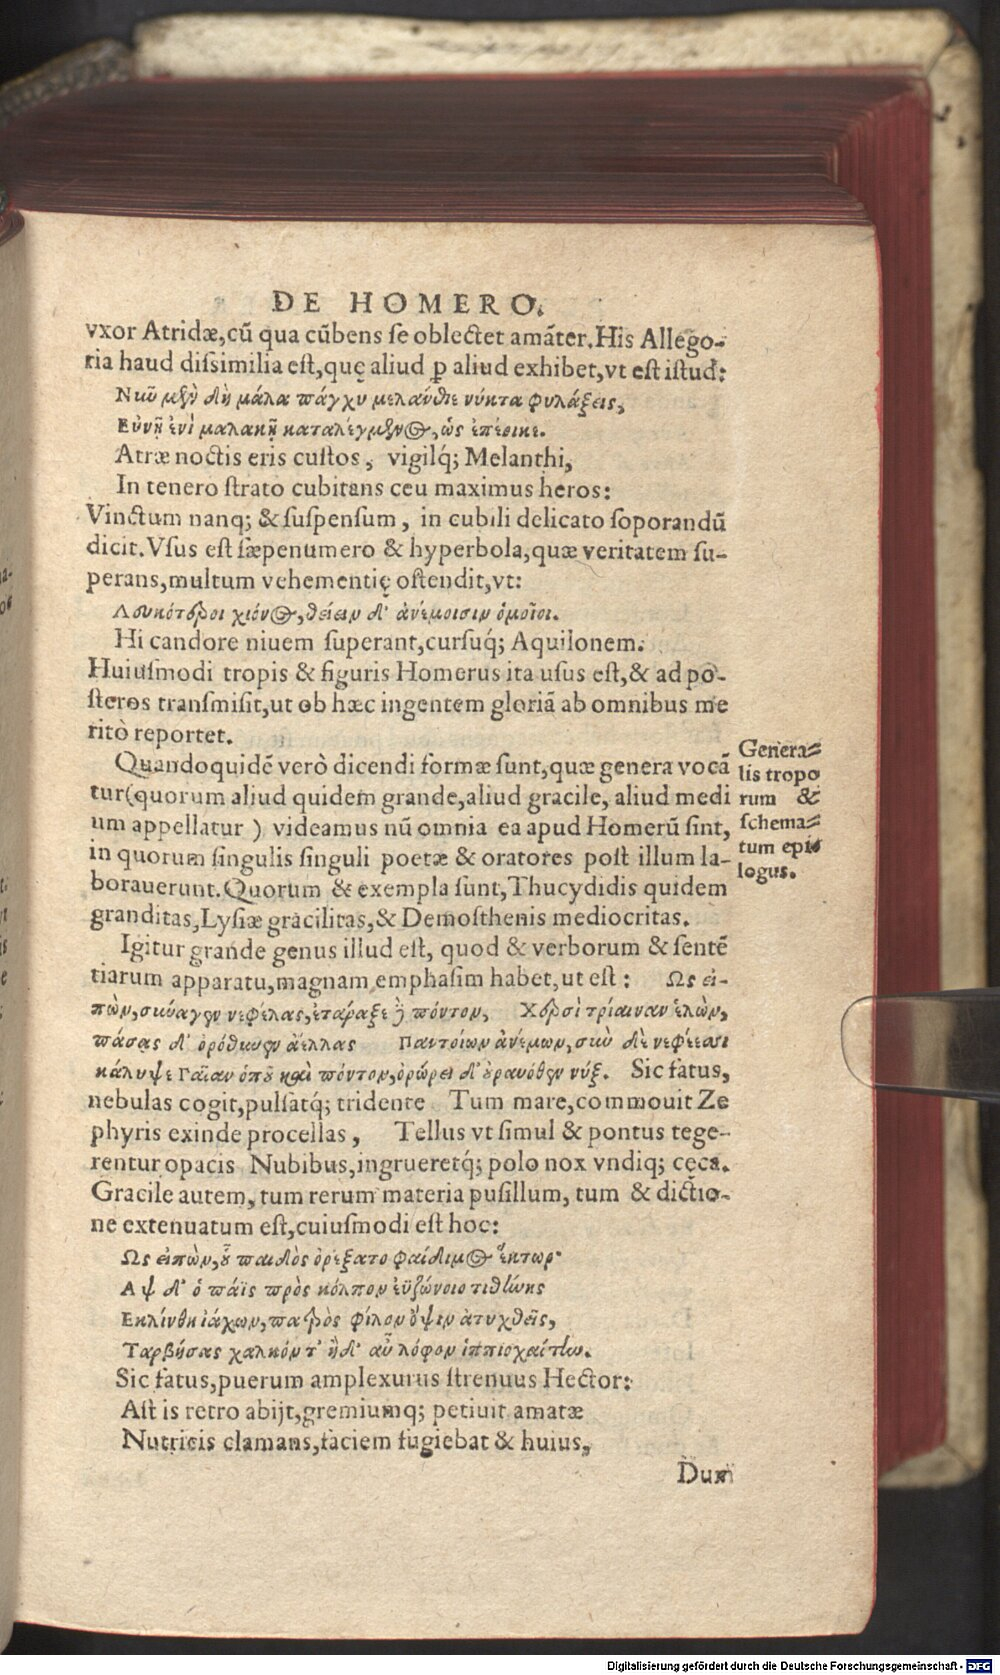 DE HOMERO.
vxor Atridæ,cũ qua cũbens se oblectet amãter.His Allego-
ria haud dissimilia est,quę aliud ꝑ aliud exhibet,vt est istud:
Νῦν μὲν δὴ μάλα πάγχυ μελάνθιε νύκτα φυλάξεις,
Εὐνῇ ἐνὶ μαλακῇ καταλέγμενος, ὥς ἐπέοικε.
Atræ noctis eris custos, vigilq́; Melanthi,
In tenero strato cubitans ceu maximus heros:
Vinctum nanq; & suspensum, in cubili delicato soporandũ
dicit.Vsus est sæpenumero & hyperbola,quæ veritatem su-
perans,multum vehementię ostendit,vt:
Λευκότεροι χιόνος,θείειν δ' ἀνέμοισιν ὁμοῖοι.
Hi candore niuem superant,cursuq́; Aquilonem.
Huiusmodi tropis & figuris Homerus ita usus est,& ad po-
steros transmisit,ut ob hæc ingentem gloriã ab omnibus me
ritò reportet.
Quandoquidẽ verò dicendi formæ sunt,quæ genera vocã
tur(quorum aliud quidem grande,aliud gracile, aliud medi
um appellatur) videamus nũ omnia ea apud Homerũ sint,
in quorum singulis singuli poetæ & oratores post illum la-
borauerunt.Quorum & exempla sunt,Thucydidis quidem
granditas,Lysiæ gracilitas,& Demosthenis mediocritas.
Genera=
lis tropo
rum &
schema=
tum epi
logus.
Igitur grande genus illud est, quod & verborum & sentẽ
tiarum apparatu,magnam emphasim habet,ut est: Ως εἰ-
πὼν,σύναγεν νεφέλας,ἐτάραξε ἢ πόντον, Χερσὶ τρίαιναν ἑλὼν,
πάσας δ' ὀρόθυνεν ἀέλλας Παντοίων ἀνέμων,σὺν δὲ νεφέεσσι
κάλυψε Γαῖαν ὁποῦ καὶ πόντον,ὀρώρει δ' οὐρανόθεν νύξ. Sic fatus,
nebulas cogit,pulsatq́; tridente Tum mare,commouit Ze
phyris exinde procellas, Tellus vt simul & pontus tege-
rentur opacis Nubibus,ingrueretq́; polo nox vndiq; cęca.
Gracile autem, tum rerum materia pusillum, tum & dictio-
ne extenuatum est,cuiusmodi est hoc:
Ως εἰπὼν,οὗ παιδὸς ὀρέξατο φαίδιμος ἕκτωρ·
Αψ δ' ὁ πάϊς πρὸς κόλπον ἐϋζώνοιο τιθήνης
Εκλίνθη ἰάχων,πατρὸς φίλον ὄψιν ἀτυχθεὶς,
Ταρβήσας χαλκόν τ' ἠδ' αὖ λόφον ἱππιοχαίτην.
Sic fatus,puerum amplexurus strenuus Hector:
Ast is retro abijt,gremiumq; petiuit amatæ
Nutricis clamans,faciem fugiebat & huius,
Dum
Digitalisierung gefördert durch die Deutsche Forschungsgemeinschaft - DFG